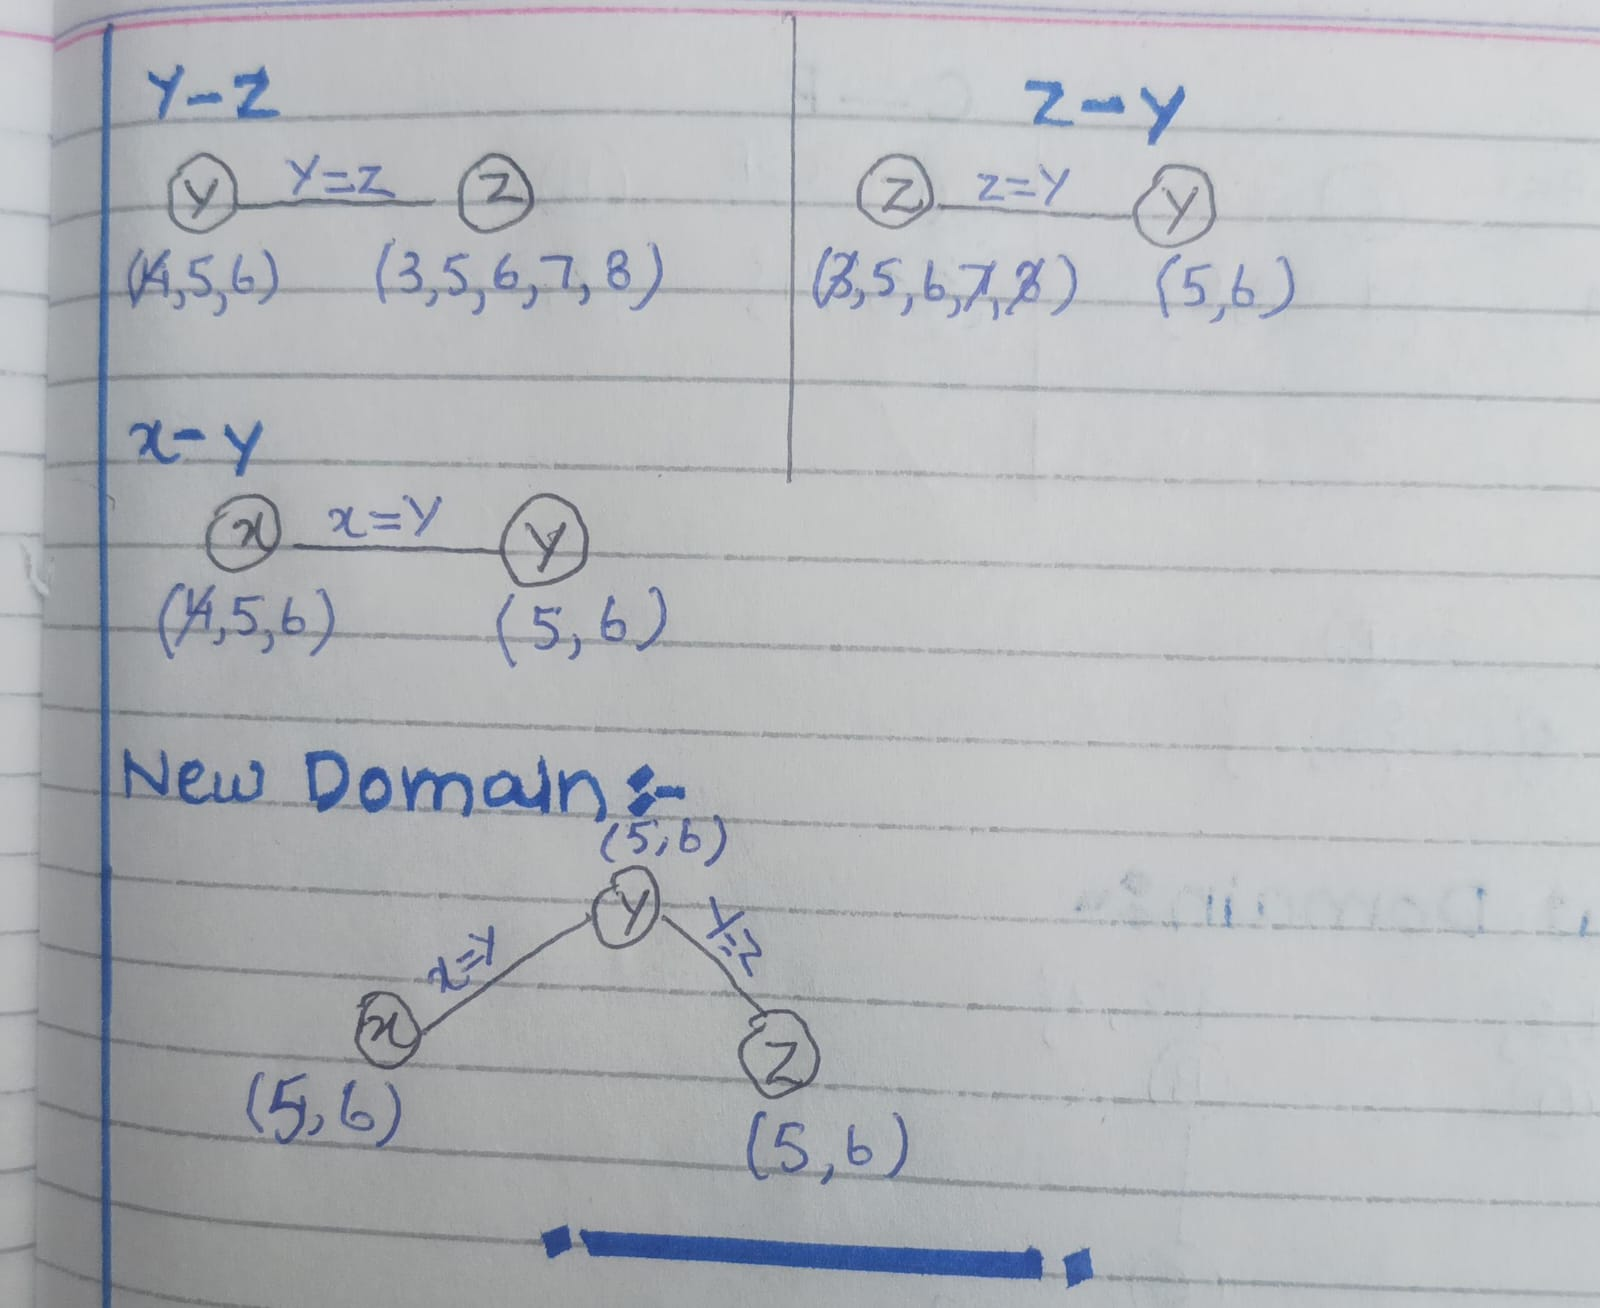 Y-Z
Y Y=Z Z
(4,5,6) (3,5,6,7,8)
Z-Y
Z Z=Y Y
(3,5,6,7,8) (5,6)
x-y
x x=Y Y
(4,5,6) (5,6)
New Domain:-
(5,6)
Y
x=Y Y=Z
x Z
(5,6) (5,6)